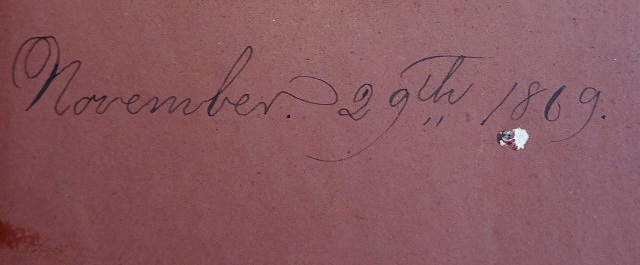 November. 29th 1869.